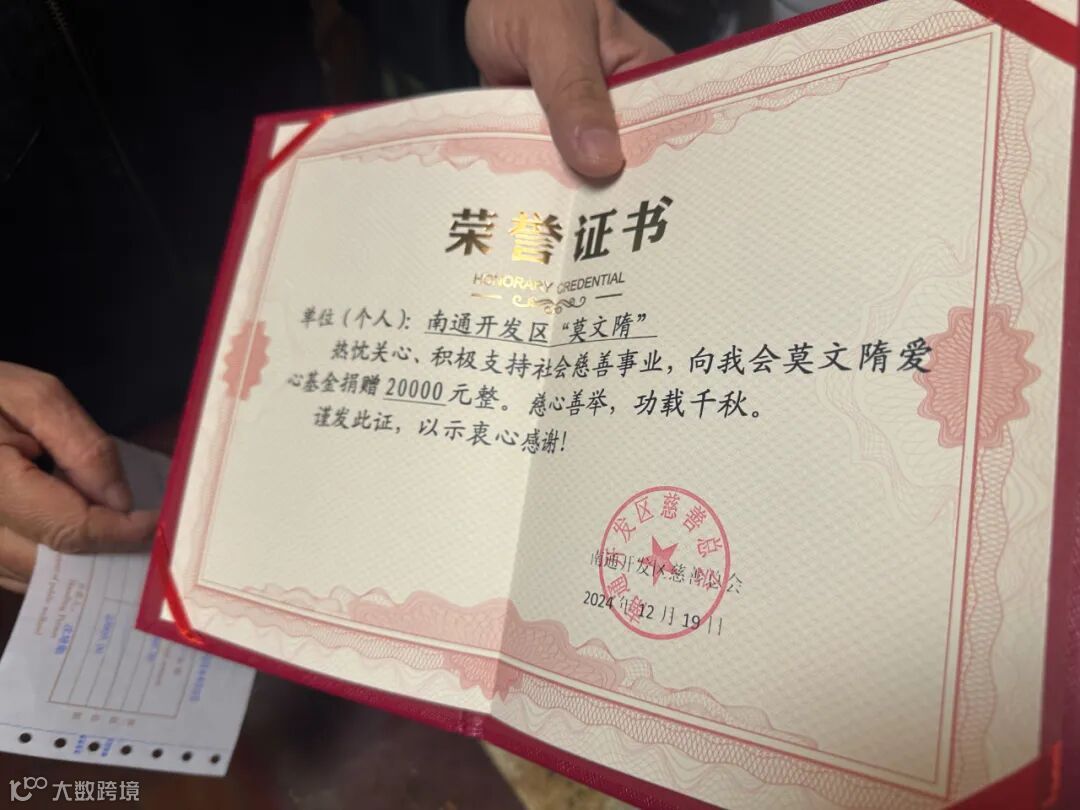 荣誉证书
HONORARY CREDENTIAL
单位(个人):南通开发区“莫文隋”
热忱关心、积极支持社会慈善事业,向我会莫文隋爱
心基金捐赠20000元整。慈心善举,功载千秋。
谨发此证,以示衷心感谢!
南通开发区慈善总会
南通开发区慈善总会
2024年12月19日
大数跨境